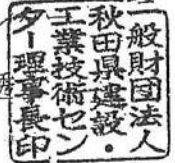 一般財団法人
秋田県建設・
工業技術セン
ター理事長印